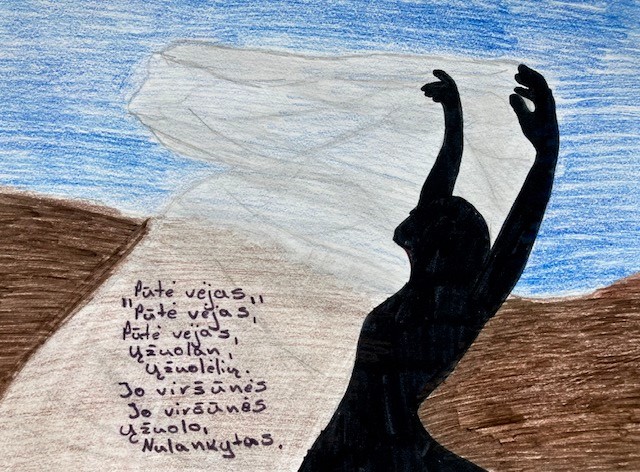 Pūtė vėjas,,
"Pūtė vėjas,
Pūtė vėjas,
Ųžuolan,
Ųžuolėlių.
Jo viršūnės
Jo viršūnės
Ųžuolo,
Nulankytas.